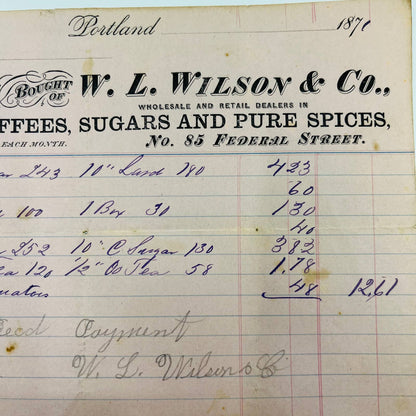 Portland 187
BOUGHT OF W. L. WILSON & CO.,
WHOLESALE AND RETAIL DEALERS IN
FFEES, SUGARS AND PURE SPICES,
EACH MONTH. No. 85 FEDERAL STREET.
243 10" Lard 180 423
60
100 1 Box 30 130
40
252 10" C Sugar 130 382
120 1/2" Oo Tea 58 1.78
48 12,61
Payment
W. L. Wilson & Co